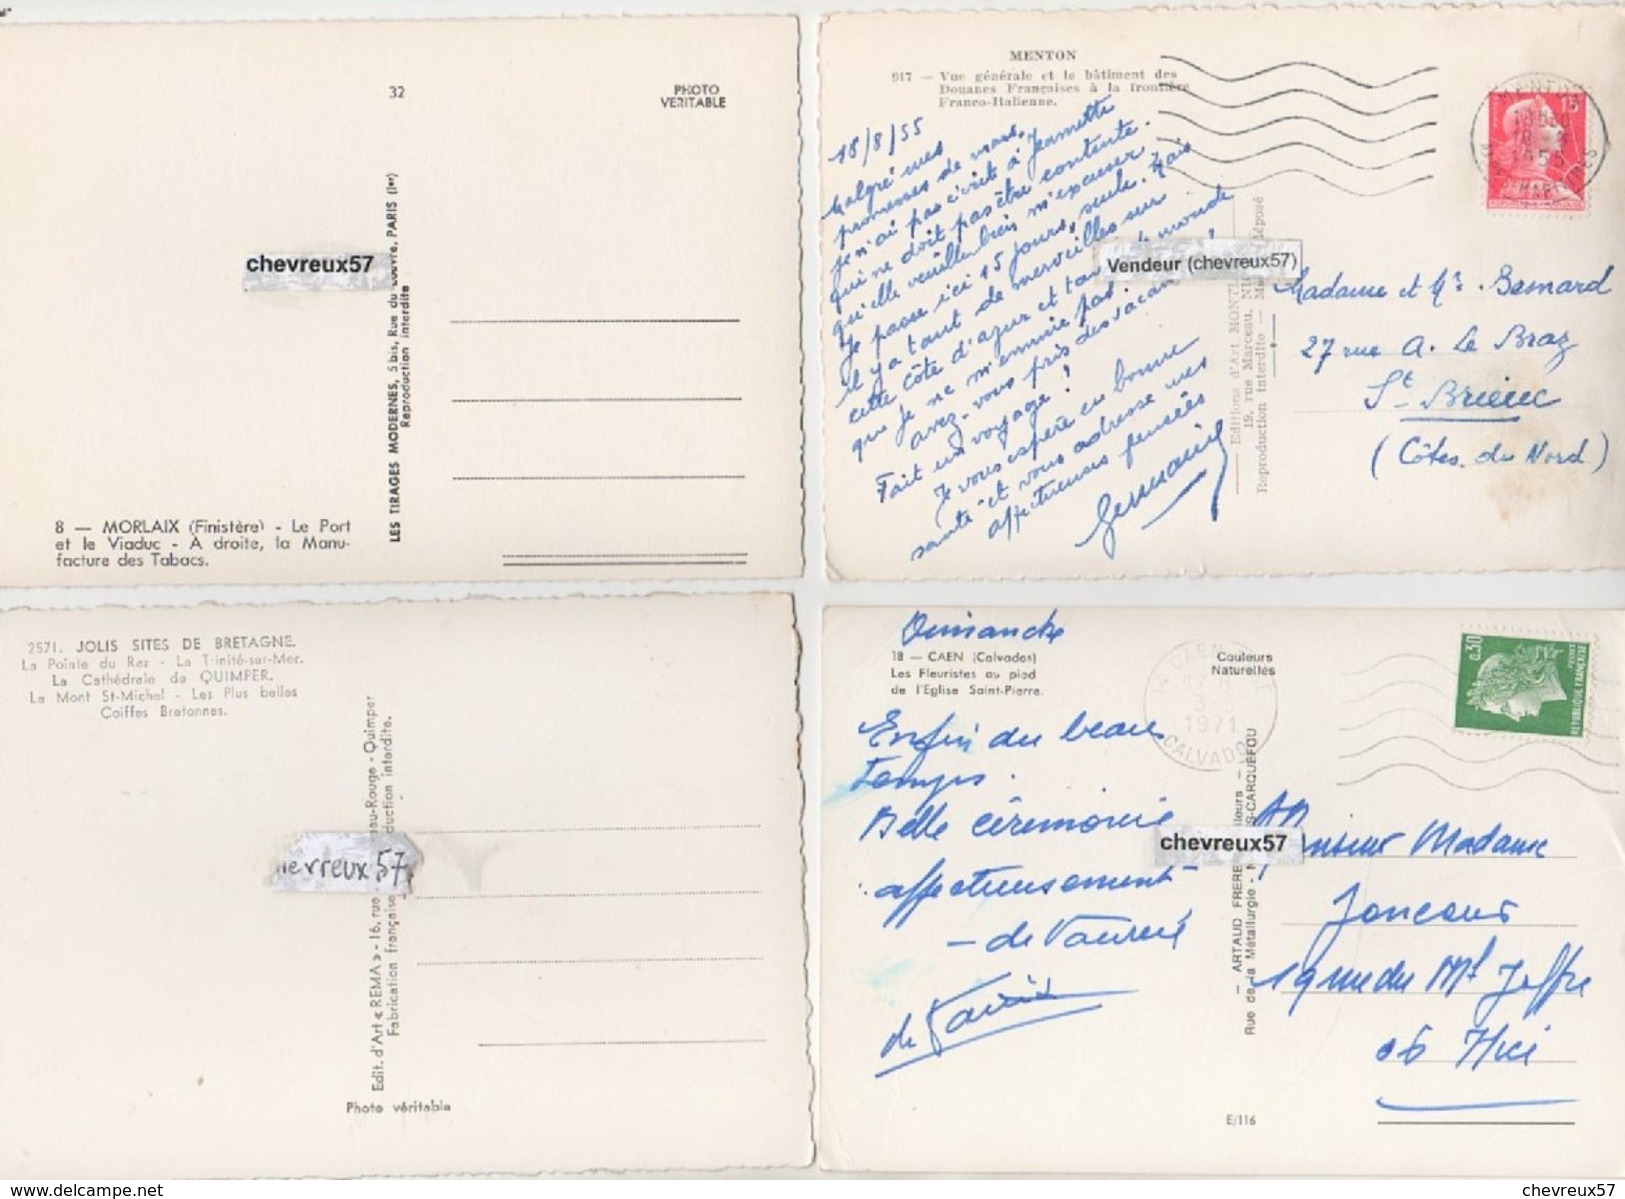 32
PHOTO
VERITABLE
LES TIRAGES MODERNES, 5 bis, Rue du Louvre, PARIS (Ier)
Reproduction interdite
chevreux57
8 — MORLAIX (Finistère) - Le Port
et le Viaduc - A droite, la Manu-
facture des Tabacs.
MENTON
917 — Vue générale et le bâtiment des
Douanes Françaises à la frontière
Franco-Italienne.
18/8/55
Malgré mes
promesses de mars,
je n'ai pas écrit à Jeannette
qui ne doit pas être contente.
qu'elle veuille bien m'excuser
Je passe ici 15 jours, seule. Mais
il y a tant de merveilles sur
cette côte d'azur et tant de monde
que je ne m'ennuie pas.
avez-vous pris des vacances?
Fait un voyage?
Je vous espère en bonne
santé et vous adresse mes
affectueuses pensées
Germaine
Editions d'Art
19, rue Marceau,
Reproduction interdite — déposé
Vendeur (chevreux57)
15
MENTON
1955
Madame et Mr Besnard
27 rue A. Le Braz
St Brieuc
(Côtes du Nord)
2571. JOLIS SITES DE BRETAGNE.
La Pointe du Raz - La Trinité-sur-Mer.
La Cathédrale de QUIMPER.
Le Mont St-Michel - Les Plus belles
Coiffes Bretonnes.
Edit. d'Art « REMA » - 16, rue -Rouge - Quimper
Fabrication française duction interdite.
evreux 57
Photo véritable
Dimanche
18 — CAEN (Calvados)
Les Fleuristes au pied
de l'Eglise Saint-Pierre.
Couleurs
Naturelles
14 CAEN
1971
CALVADOS
0,30
POSTES
REPUBLIQUE FRANÇAISE
Enfin du beau
temps.
Belle cérémonie
affectueusement
— ARTAUD FRERES —
Rue de la Métallurgie - CARQUEFOU
chevreux57
Monsieur Madame
19 rue du Ml Joffre
06 Nice
E/116
chevreux57